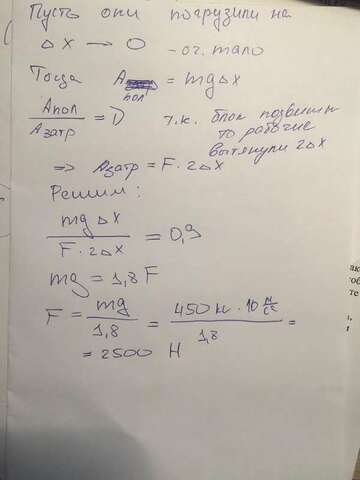 Пусть они погрузили на
Δx → 0 - оч. мало
Тогда Aпол = mgΔx
Aпол / Aзатр = D т.к. блок подвешен
то рабочие
вытянули 2Δx
=> Aзатр = F · 2Δx
Решим:
mgΔx / F · 2Δx = 0,9
mg = 1,8 F
F = mg / 1,8 = 450 кг · 10 Н/кг / 1,8 =
= 2500 Н